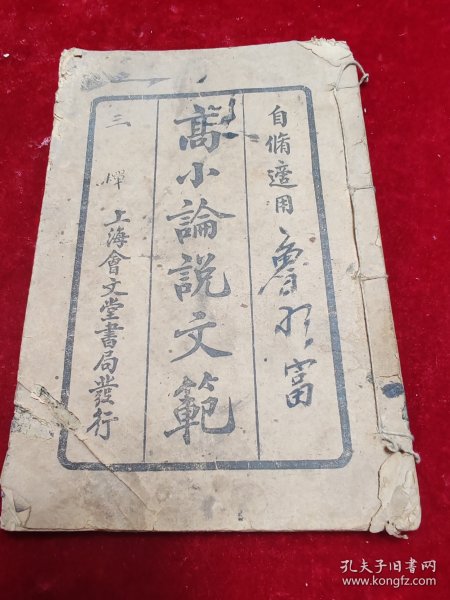 自脩適用
高小論說文範
三
上海會文堂書局發行
孔夫子旧书网
www.kongfz.com